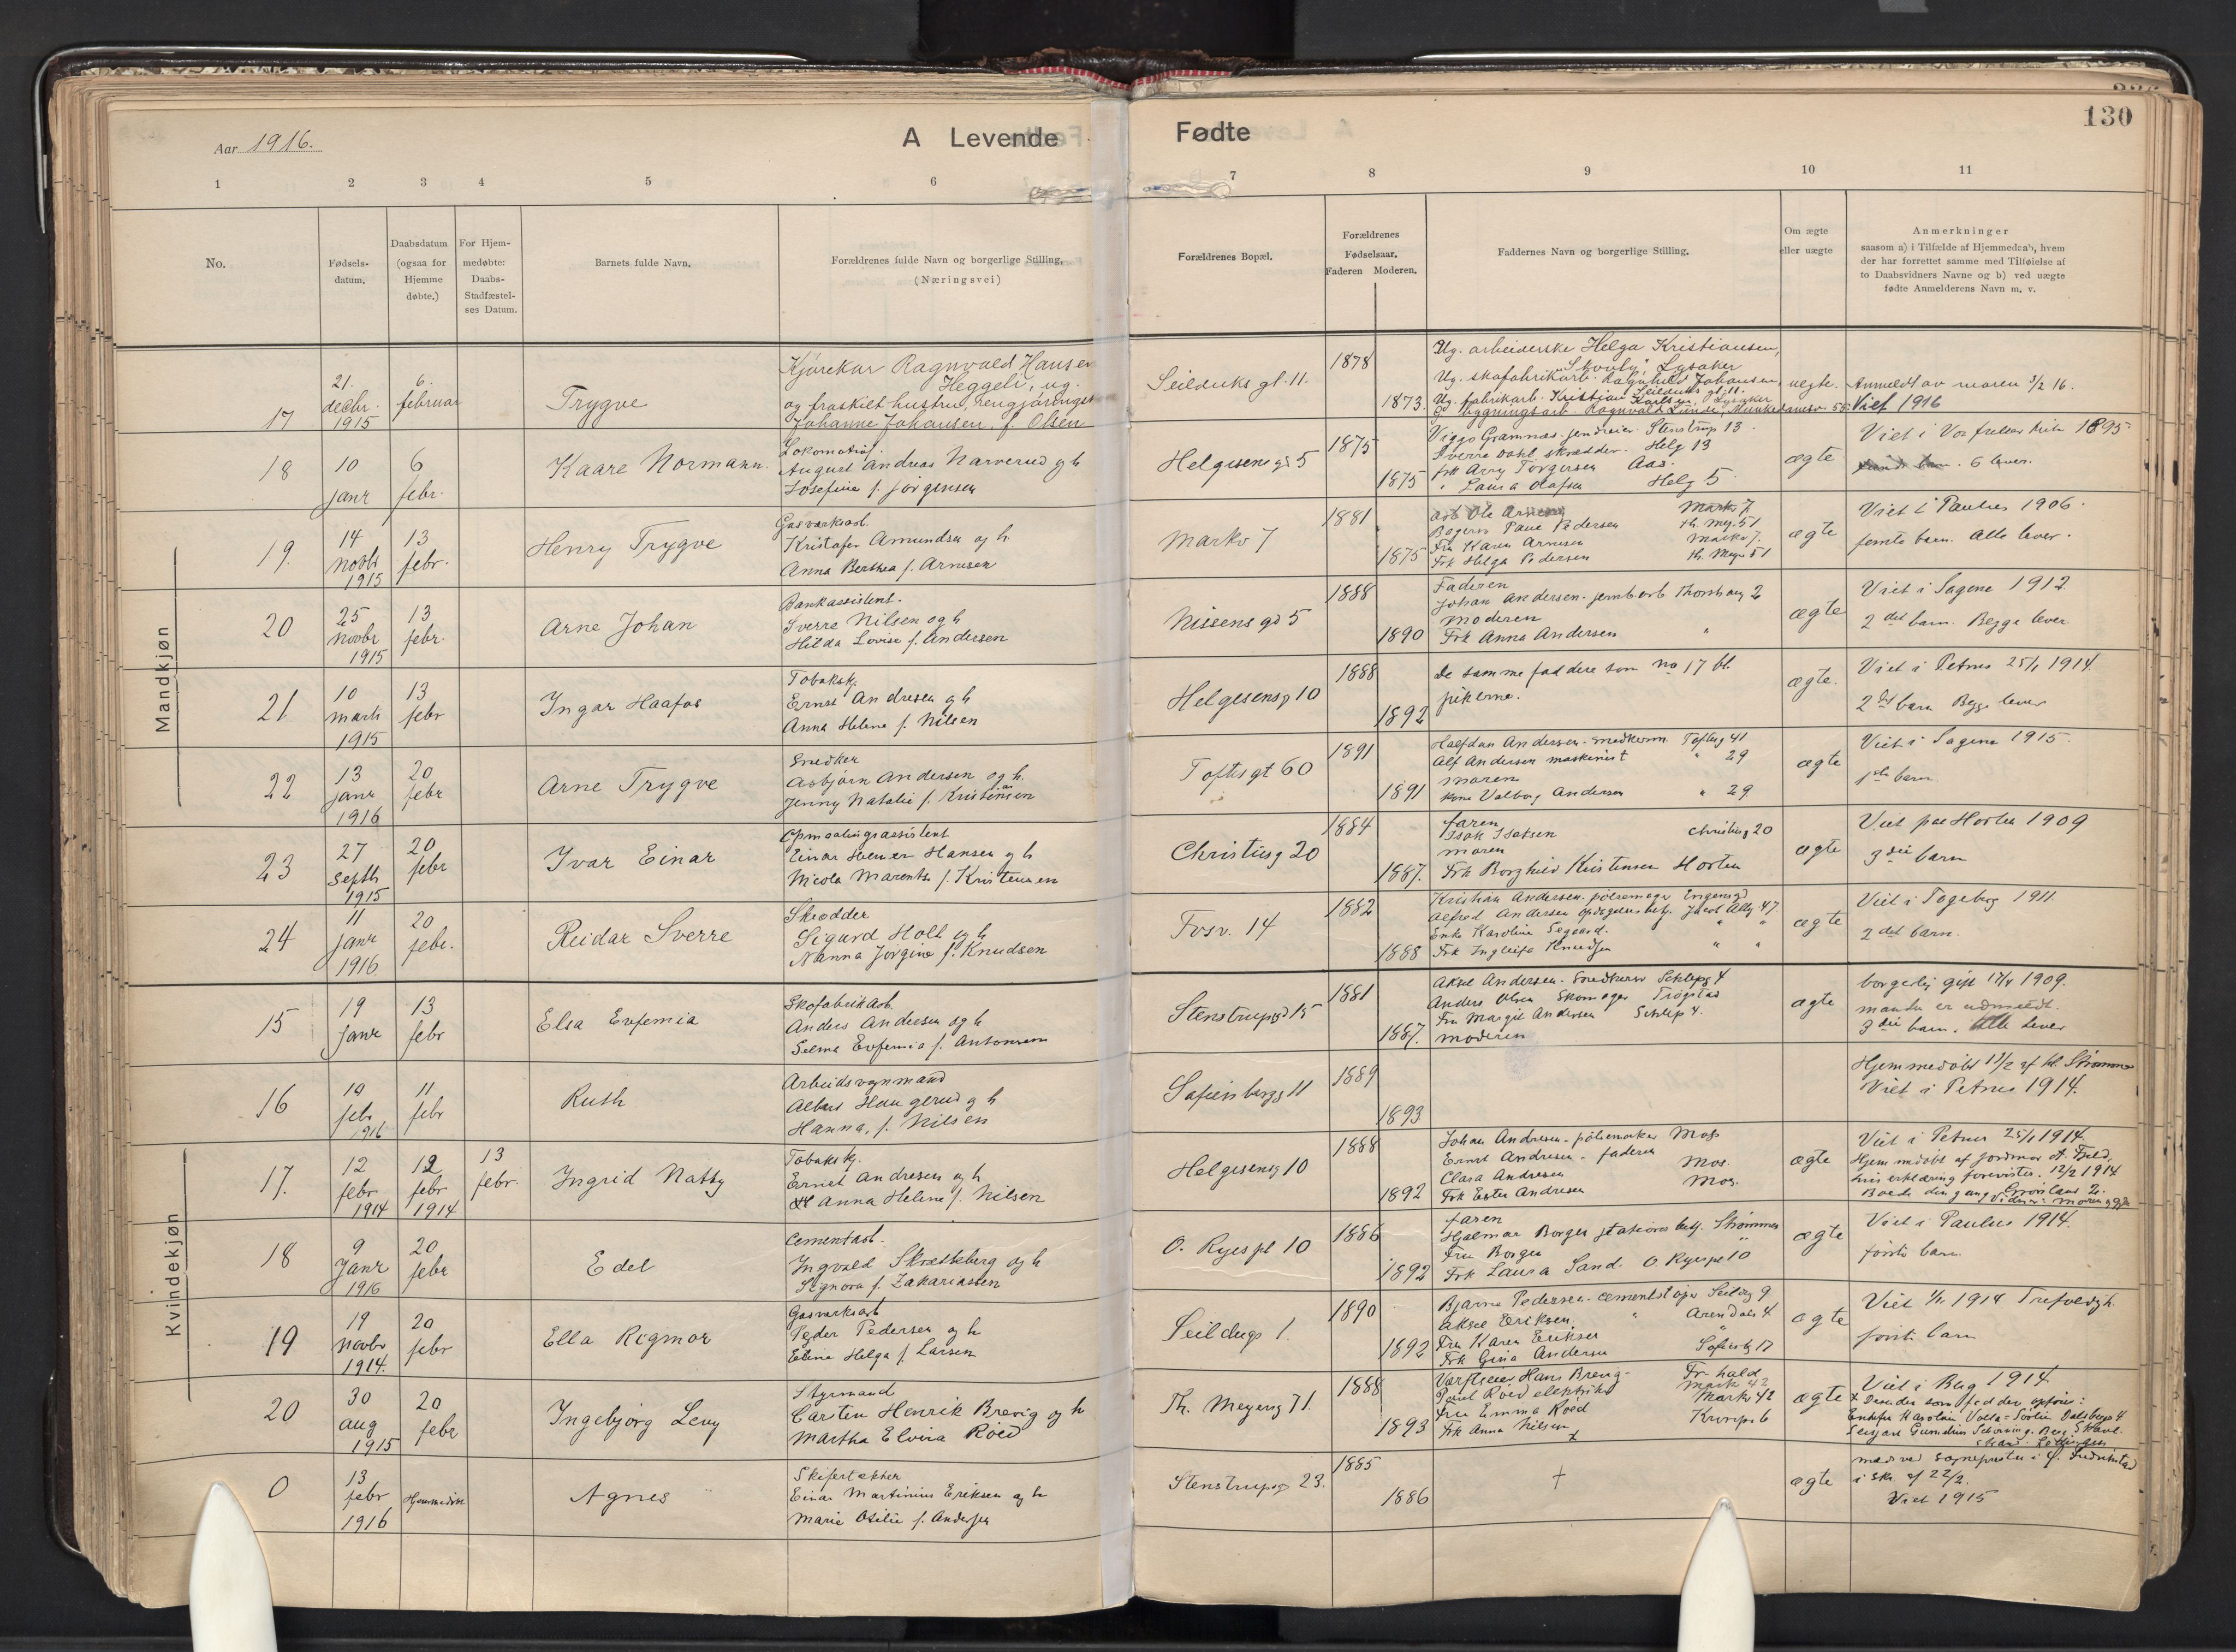 130
Aar 1916.
A Levende Fødte
1 2 3 4 5 6 7 8 9 10 11
No.
Fødsels-
datum.
Daabsdatum
(ogsaa for
Hjemme
døbte.)
For Hjem-
medøbte:
Daabs-
Stadfæstel-
ses Datum.
Barnets fulde Navn.
Forældrenes fulde Navn og borgerlige Stilling.
(Næringsvei)
Forældrenes Bopæl.
Forældrenes
Fødselsaar.
Faderen Moderen.
Faddernes Navn og borgerlige Stilling.
Om ægte
eller uægte
Anmerkninger
saasom a) i Tilfælde af Hjemmedaab, hvem
der har forrettet samme med Tilføielse af
to Daabsvidners Navne og b) ved uægte
fødte Anmelderens Navn m. v.
Mandkjøn
17
21.
decbr.
1915
6.
februar
Trygve
Kjørekar Ragnvald Hansen
Heggeli, ug.
og fraskilt hustru, rengjørings
Johanne Johansen, f. Olsen
Seilduks gt. 11.
1878
1873.
Ug. arbeiderske Helga Kristiansen,
Lysaker
Ug. skofabrikarb. Ragnhild Johansen,
Seilduks gt. 11.
Ug. fabrikarb. Kristian Karlsen, Lysaker
Ragnvald Lunde, Munkedamsv. 55.
uegte.
Anmeldt av moren 3/2 16.
Viet 1916
18
10
janr
6
febr.
Kaare Normann.
Lokomotivf.
August Andreas Narverud og h
Josefine f. Jørgensen
Helgesens gd 5
1875
1875
Viggo Gramnæs. Stenstrup 13.
Sverre Dahl skrædder. Helg 13
frk Arny Torgersen Aas.
" Laura Olafsen Helg 5
ægte
Viet i Vor frelser kirke 1895
6 lever.
19.
14
novbr
1915
13
febr.
Henry Trygve
Gasværksarb.
Kristofer Amundsen og h.
Anna Berthea f. Arnesen
Markv 7
1881
1875
Arb Ole Arnesen Markv 7
Paul Pedersen th. Mey. 51
Fru Karen Arnesen Markv 7.
Frk Helga Pedersen th. Meyer 51
ægte
Viet i Paulus 1906.
femte barn. Alle lever.
20
25
novbr
1915
13
febr.
Arne Johan
Bankassistent.
Sverre Nilsen og h
Hilda Lovise f. Andersen
Nissens gd 5
1888
1890
Faderen
Johan Andersen. jernbarb Thorshaug 2
Moderen
Frk Anna Andersen "
ægte
Viet i Sagene 1912
2det barn. Begge lever
21
10
marts
1915
13
febr
Ingar Haafos
Tobaksh.
Ernst Andresen og h
Anna Helene f. Nilsen
Helgesensg 10
1888
1892
De samme faddere som no 17 bl.
pikerne.
ægte.
Viet i Petrus 25/1 1914.
2det barn Begge lever
22
13
janr
1916
20
febr
Arne Trygve
Snedker
Asbjørn Andersen og h.
Jenny Natalie f. Kristensen
Toftesgt 60
1891
1891
Halfdan Andersen. snedkersv. Toftesg 41
Alf Andersen maskinist " 29
moren
Kone Valborg Andersen " 29
ægte
Viet i Sagene 1915.
1ste barn
23
27
septbr
1915
20
febr
Ivar Einar
Opmaalingsassistent
Einar Werner Hansen og h
Nicola Marentse f. Kristensen
Christiesg 20
1884
1887.
faren
Isak Isaksen Christiesg 20
moren
Frk Borghild Kristensen Horten
ægte
Viet paa Horten 1909
3die barn
24
11
janr
1916
20
febr.
Reidar Sverre
Skrædder
Sigurd Holt og h
Nanna Jørgine f. Knudsen
Fosv. 14
1882
1888
Kristian Andersen. pølsemager Engensgd
Alfred Andersen opdagelsesbetj. Jacob Allsg. 47
Enke Karoline Segaard. " "
Frk Ingleifa Knudsen " "
ægte
Viet i Fageborg 1911
2det barn.
Kvindekjøn
15
19
janr
13
febr
Elsa Eufemia
Skofabrikarb.
Anders Andersen og h
Selma Eufemia f. Antonsen
Stenstrupsgd 15
1881
1887.
Aksel Andersen. Snedkersv Schlepsg 4
Anders Olsen Skomager Trøgstad
Fru Margit Andersen Schlep 4.
moderen
ægte
borgerlig gift 17/4 1909.
manden er udmeldt.
3die barn. Alle lever
16
19
febr
1916
11
febr
Ruth
Arbeidsvognmand
Albert Haugerud og h
Hanna, f. Nilsen
Sofienbergg 11
1889
1893
Hjemmedøbt 11/2 af kl. Strømme
Viet i Petrus 1914.
17.
12
febr
1914
12
febr
1914
13
febr.
Ingrid Nathy
Tobaksh.
Ernst Andresen og h
Anna Helene f. Nilsen
Helgesensg 10
1888
1892
Johan Andresen. pølsemaker Moss
Ernst Andresen. faderen
Clara Andresen Mos.
Frk Ester Andresen Mos.
ægte
Viet i Petrus 25/1 1914.
Hjemmedøbt af Jordmor A. Fjeld,
hvis erklæring forevistes. 12/2 1914
Boede den gang Grønland 20.
18
9
janr
1916
20
febr
Edel
Cementarb.
Ingvald Skretteberg og h
Signora f. Zakariassen
O. Ryespl 10
1886
1892
faren
Hjalmar Borger stationsbetj. Strømmen
Fru Borger "
Frk Laura Sand. O. Ryespl 10
ægte
Viet i Paulus 1914.
første barn
19
19
novbr
1914.
20
febr
Ella Rigmor
Gasværksarb
Peder Pedersen og h
Eline Helga f. Larsen
Seildugs 1.
1890
1892
Bjarne Pedersen. cementstøper Seildug 9
Aksel Eriksen " Arendals 4
Fru Karen Eriksen "
Frk Gina Andersen Sofienbg 17
ægte
Viet 1914 Trefoldigh.
første barn
20
30
aug
1915
20
febr
Ingebjørg Levy
Styrmand
Carsten Henrik Brevig og h
Martha Elvira Röed
Th. Meyersg 71.
1888
1893
Værftseier Hans Brevig - Fr-hald
Paul Röed elektriker Mark 42
Fru Emma Röed Markv 42
Frk Anna Nilsen Krongs 6
x
ægte
Viet i Berg 1914
x Desuden som fadder opføres:
Enkefru Karoline Dalsbergs 4
0
13
febr
1916
Hjemmedøbt
Agnes
Skifertækker
Einar Martinius Eriksen og h
Marie Otilie f. Andersen
Stenstrupsg 23.
1885
1886
†
ægte
sogneprestens i Ø. Fredrikstad
i skr. af 22/2.
Viet 1915